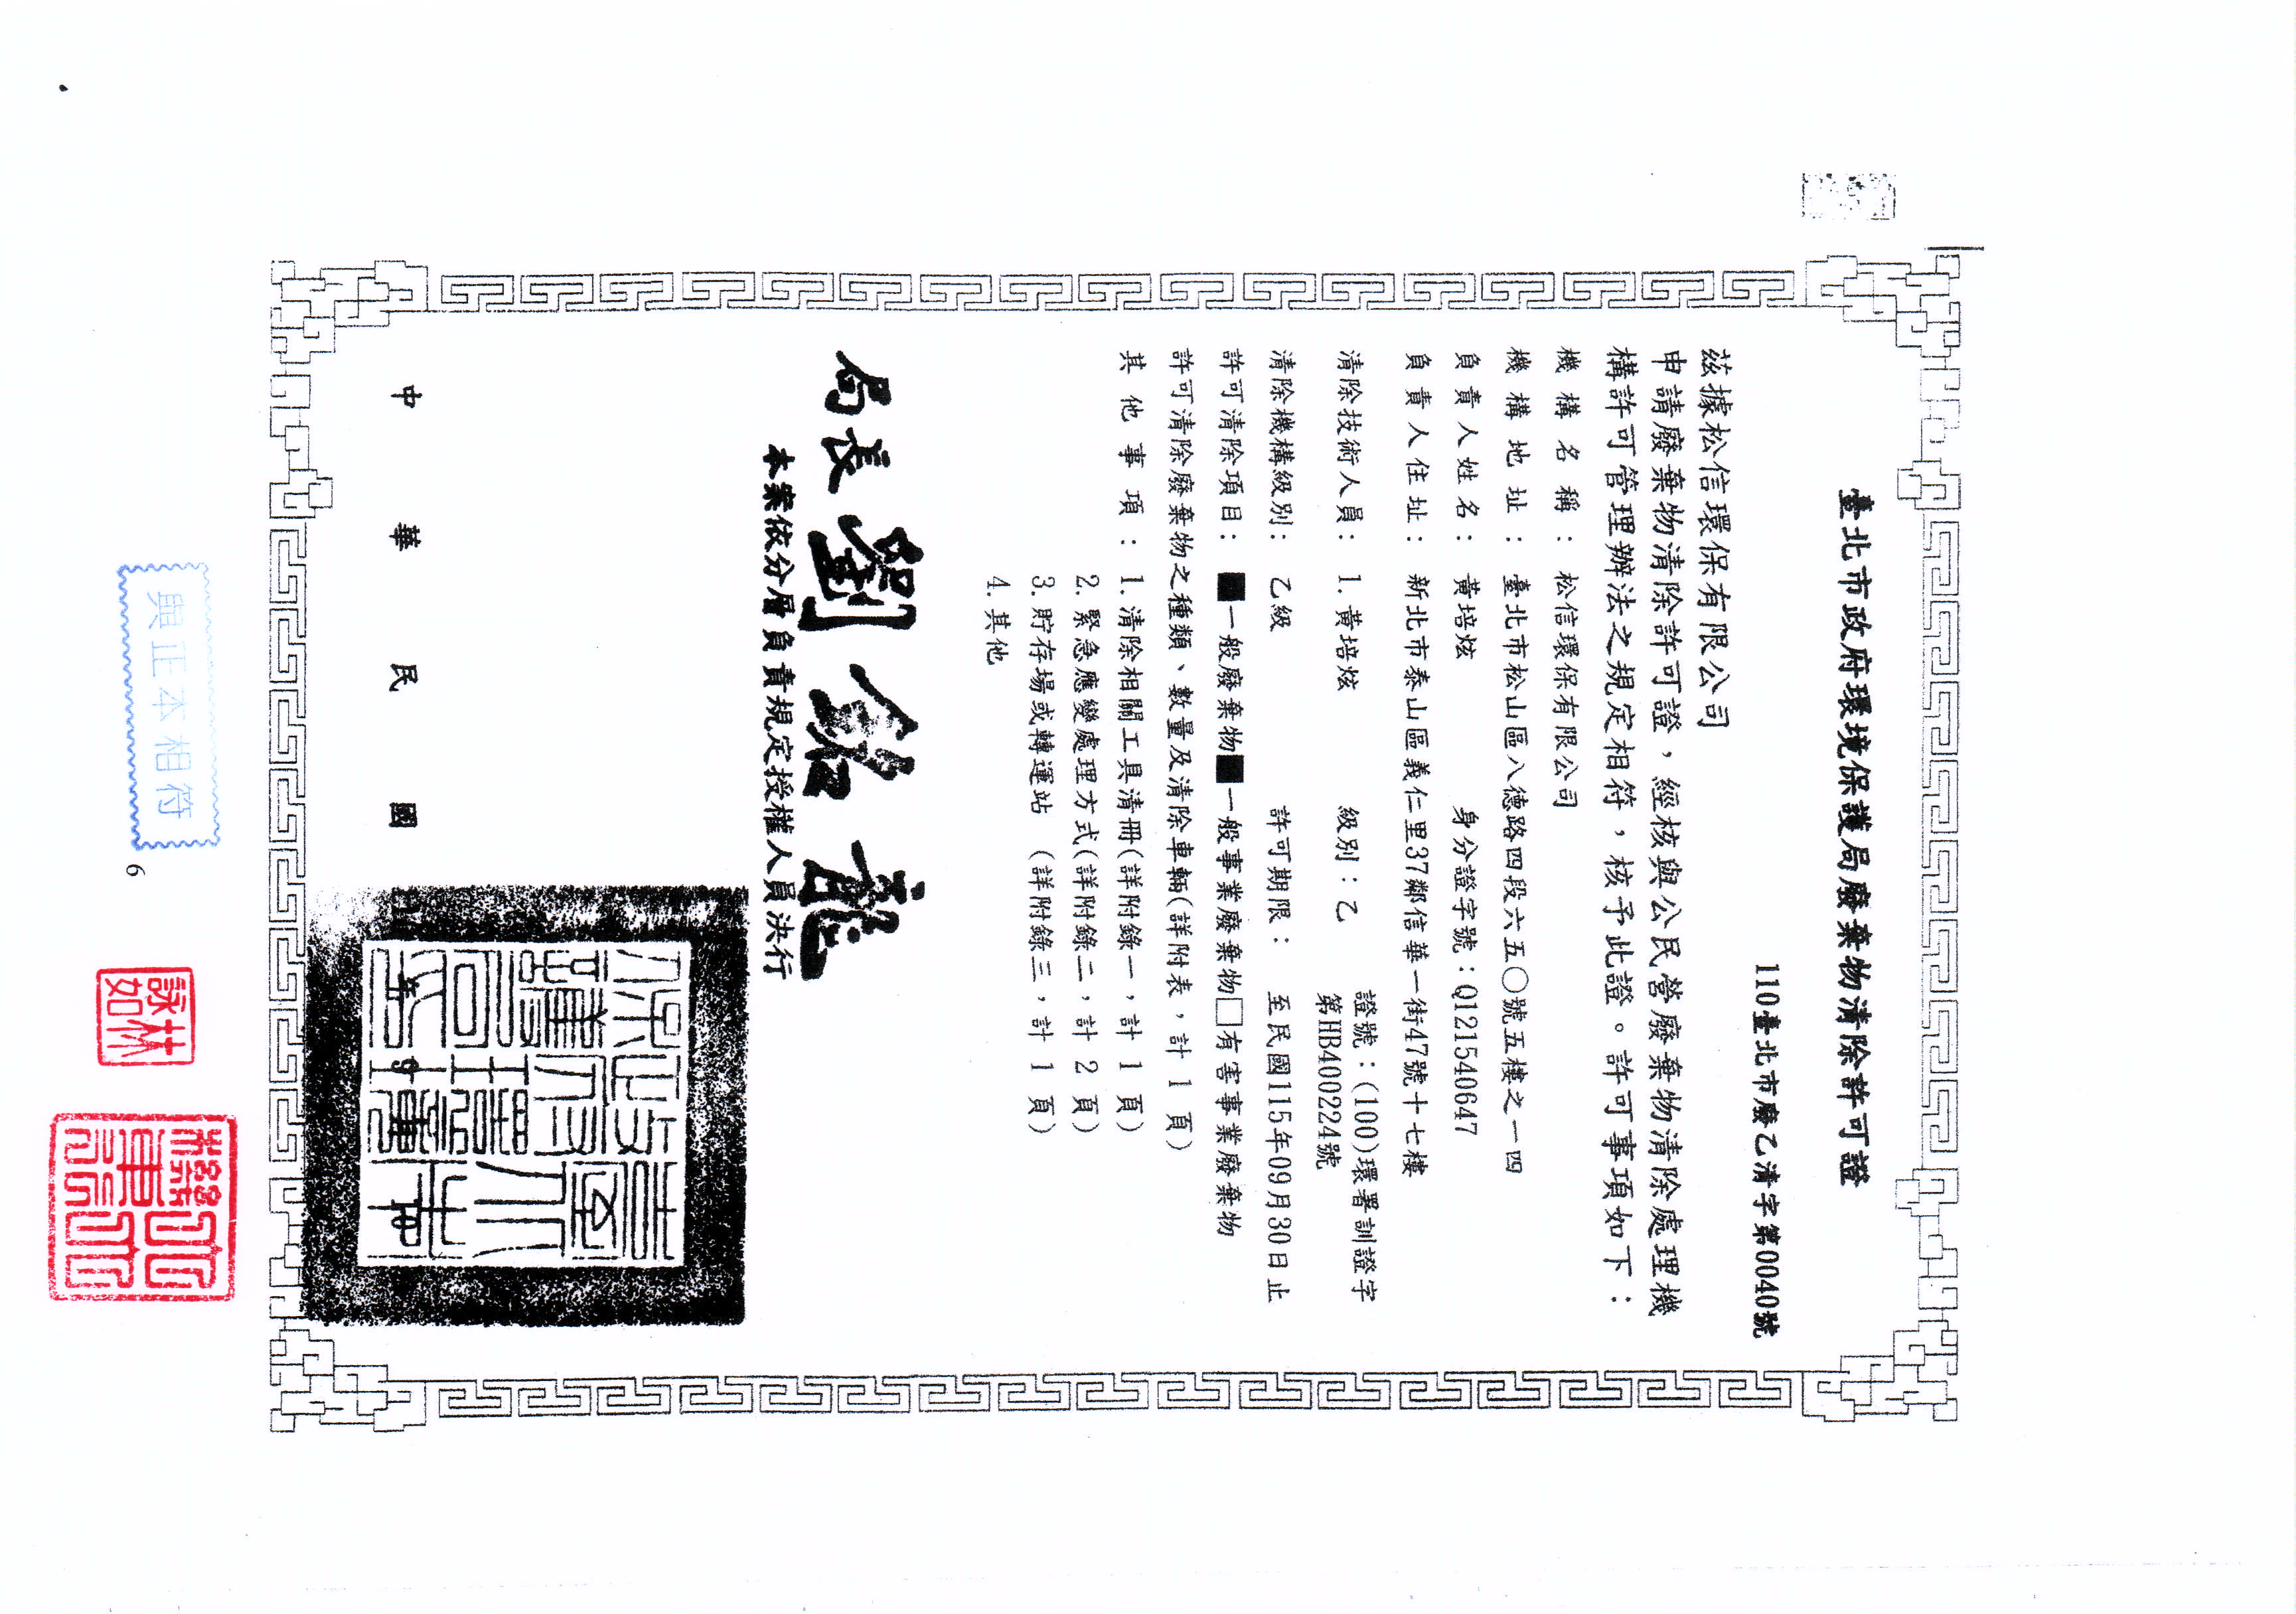 臺北市政府環境保護局廢棄物清除許可證
110臺北市廢乙清字第0040號
茲據松信環保有限公司
申請廢棄物清除許可證，經核與公民營廢棄物清除處理機
構許可管理辦法之規定相符，核予此證。許可事項如下：
機構名稱：松信環保有限公司
機構地址：臺北市松山區八德路四段六五〇號五樓之一四
負責人姓名：黃培炫 身分證字號：Q121540647
負責人住址：新北市泰山區義仁里37鄰信華一街47號十七樓
清除技術人員：1.黃培炫 級別：乙 證號：(100)環署訓證字
第HB400224號
清除機構級別：乙級 許可期限：至民國115年09月30日止
許可清除項目：■一般廢棄物■一般事業廢棄物□有害事業廢棄物
許可清除廢棄物之種類、數量及清除車輛(詳附表，計 1 頁)
其他事項：1.清除相關工具清冊(詳附錄一，計 1 頁)
2.緊急應變處理方式(詳附錄二，計 2 頁)
3.貯存場或轉運站 (詳附錄三，計 1 頁)
4.其他
局長 劉銘龍
本案依分層負責規定授權人員決行
中華民國 年 9
與正本相符
6
林詠如